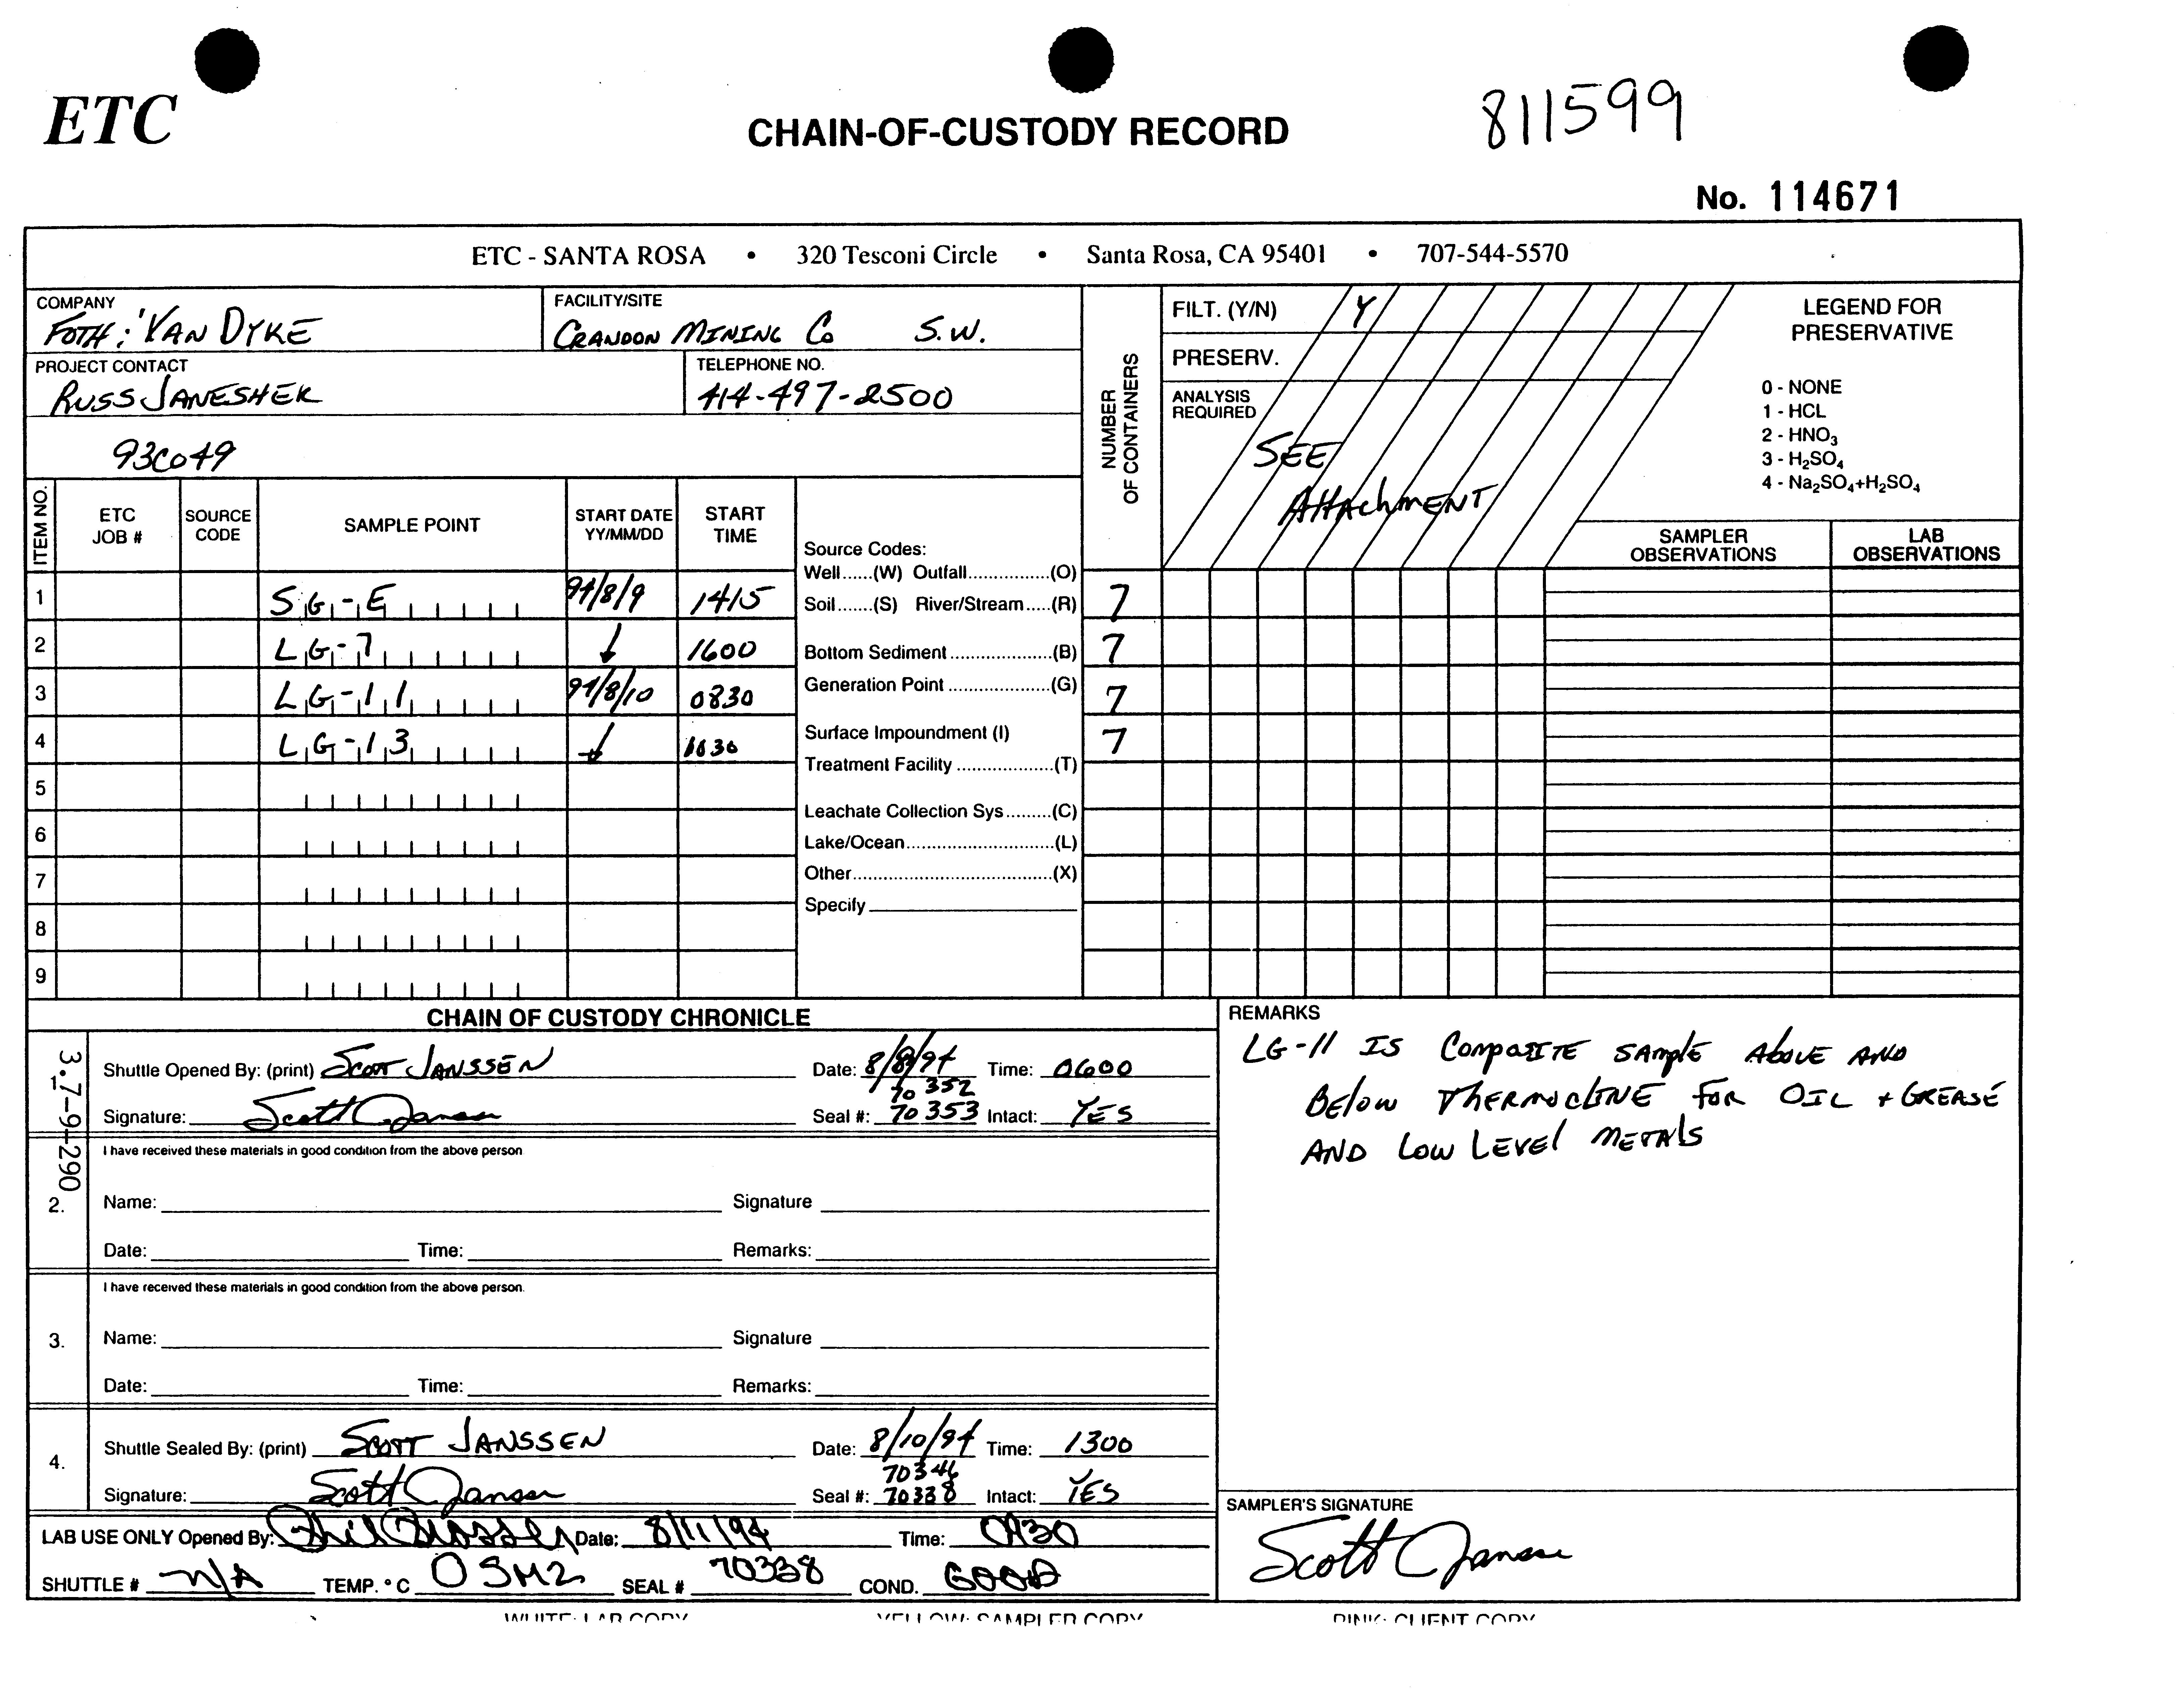 ETC
CHAIN-OF-CUSTODY RECORD
811599
No. 114671
ETC - SANTA ROSA • 320 Tesconi Circle • Santa Rosa, CA 95401 • 707-544-5570
COMPANY
FOTH & VAN DYKE
FACILITY/SITE
CRANDON MINING Co S.W.
PROJECT CONTACT
RUSS JANESHEK
TELEPHONE NO.
414-497-2500
93C049
NUMBER OF CONTAINERS
FILT. (Y/N) Y
PRESERV.
ANALYSIS REQUIRED
SEE
AttAchmENT
LEGEND FOR
PRESERVATIVE
0 - NONE
1 - HCL
2 - HNO3
3 - H2SO4
4 - Na2SO4+H2SO4
ITEM NO.
ETC JOB #
SOURCE CODE
SAMPLE POINT
START DATE YY/MM/DD
START TIME
SAMPLER OBSERVATIONS
LAB OBSERVATIONS
1 SG-E 94/8/9 1415 7
2 LG-7 ↓ 1600 7
3 LG-11 94/8/10 0830 7
4 LG-13 ↓ 1030 7
5
6
7
8
9
Source Codes:
Well......(W) Outfall...............(O)
Soil.......(S) River/Stream.....(R)
Bottom Sediment....................(B)
Generation Point....................(G)
Surface Impoundment (I)
Treatment Facility..................(T)
Leachate Collection Sys.........(C)
Lake/Ocean............................(L)
Other......................................(X)
Specify
CHAIN OF CUSTODY CHRONICLE
3.7-9-290
1
Shuttle Opened By: (print) SCOTT JANSSEN Date: 8/8/94 Time: 0600
70 352
Signature: Scott Janssen Seal #: 70353 Intact: YES
I have received these materials in good condition from the above person
2. Name: Signature
Date: Time: Remarks:
I have received these materials in good condition from the above person.
3. Name: Signature
Date: Time: Remarks:
4. Shuttle Sealed By: (print) SCOTT JANSSEN Date: 8/10/94 Time: 1300
70346
Signature: Scott Janssen Seal #: 70338 Intact: YES
LAB USE ONLY Opened By: Date: 8/11/94 Time: 0930
SHUTTLE # N/A TEMP. °C SEAL # 70338 COND. GOOD
REMARKS
LG-11 IS COMPOSITE SAMPLE ABOVE AND
BELOW THERMOCLINE FOR OIL + GREASE
AND LOW LEVEL METALS
SAMPLER'S SIGNATURE
Scott Janssen
WHITE: LAB COPY YELLOW: SAMPLER COPY PINK: CLIENT COPY